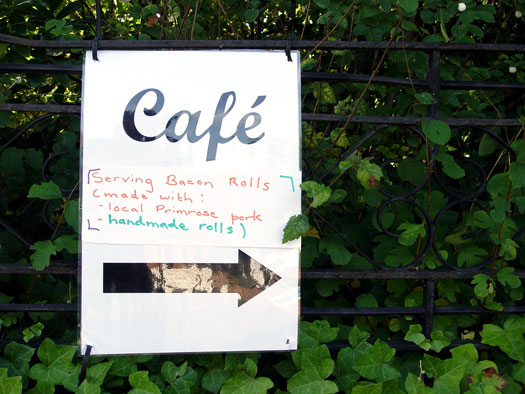 Café
Serving Bacon Rolls
(made with:
- local Primrose pork
- handmade rolls)